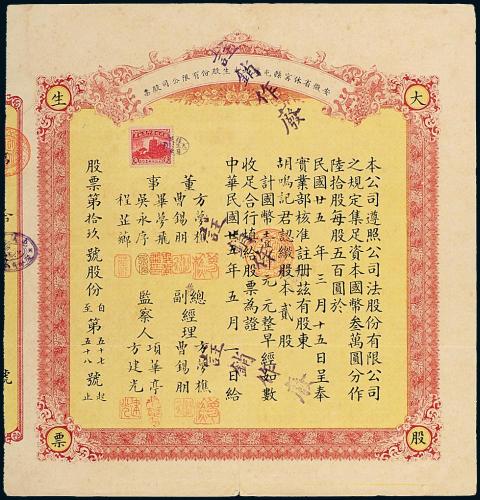 大
生
股
票
安徽省休寧縣大 生股份有限公司股票
註銷作廢
本公司遵照公司法股份有限公司
之規定集足資本國幣叁萬圓分作
陸拾股每股五百圓於
民國廿五年三月十五日呈奉
實業部核准註冊茲有股東
胡鳴記君認繳股本貳股
計國幣壹仟元 元整早經如數
收足合行填給股票為證
中華民國廿五年五月一日給
董事
方夢樵
曹錫朋
畢夢飛
吳永序
程並薌
總經理 方夢樵
副經理 曹錫朋
監察人
項華亭
方建光
股票第拾玖號股份自第五十七號起
至 五十八 止
註銷作廢
註銷作廢
號